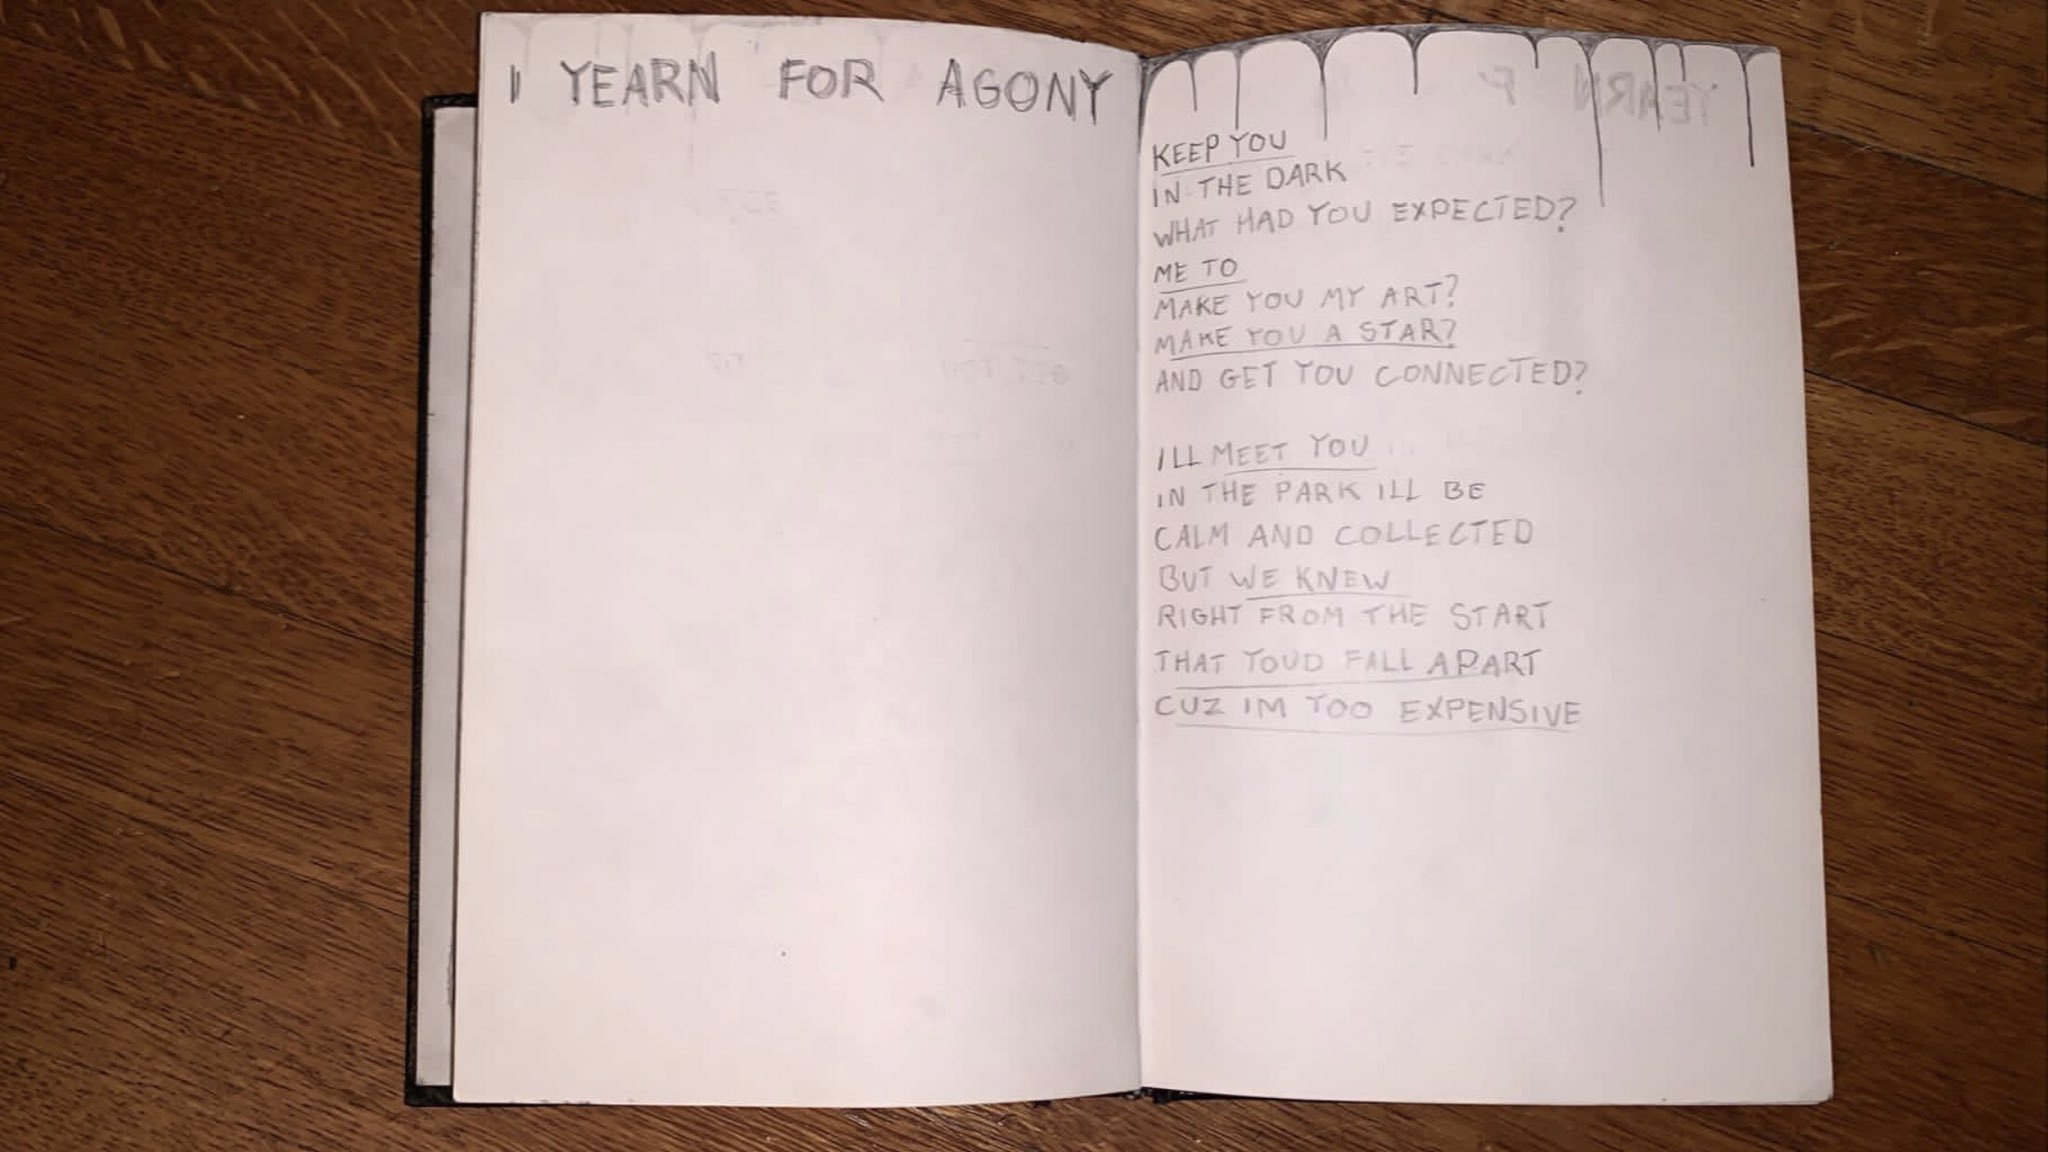 I YEARN FOR AGONY
KEEP YOU
IN THE DARK
WHAT HAD YOU EXPECTED?
ME TO
MAKE YOU MY ART?
MAKE YOU A STAR?
AND GET YOU CONNECTED?
ILL MEET YOU
IN THE PARK ILL BE
CALM AND COLLECTED
BUT WE KNEW
RIGHT FROM THE START
THAT YOUD FALL APART
CUZ IM TOO EXPENSIVE